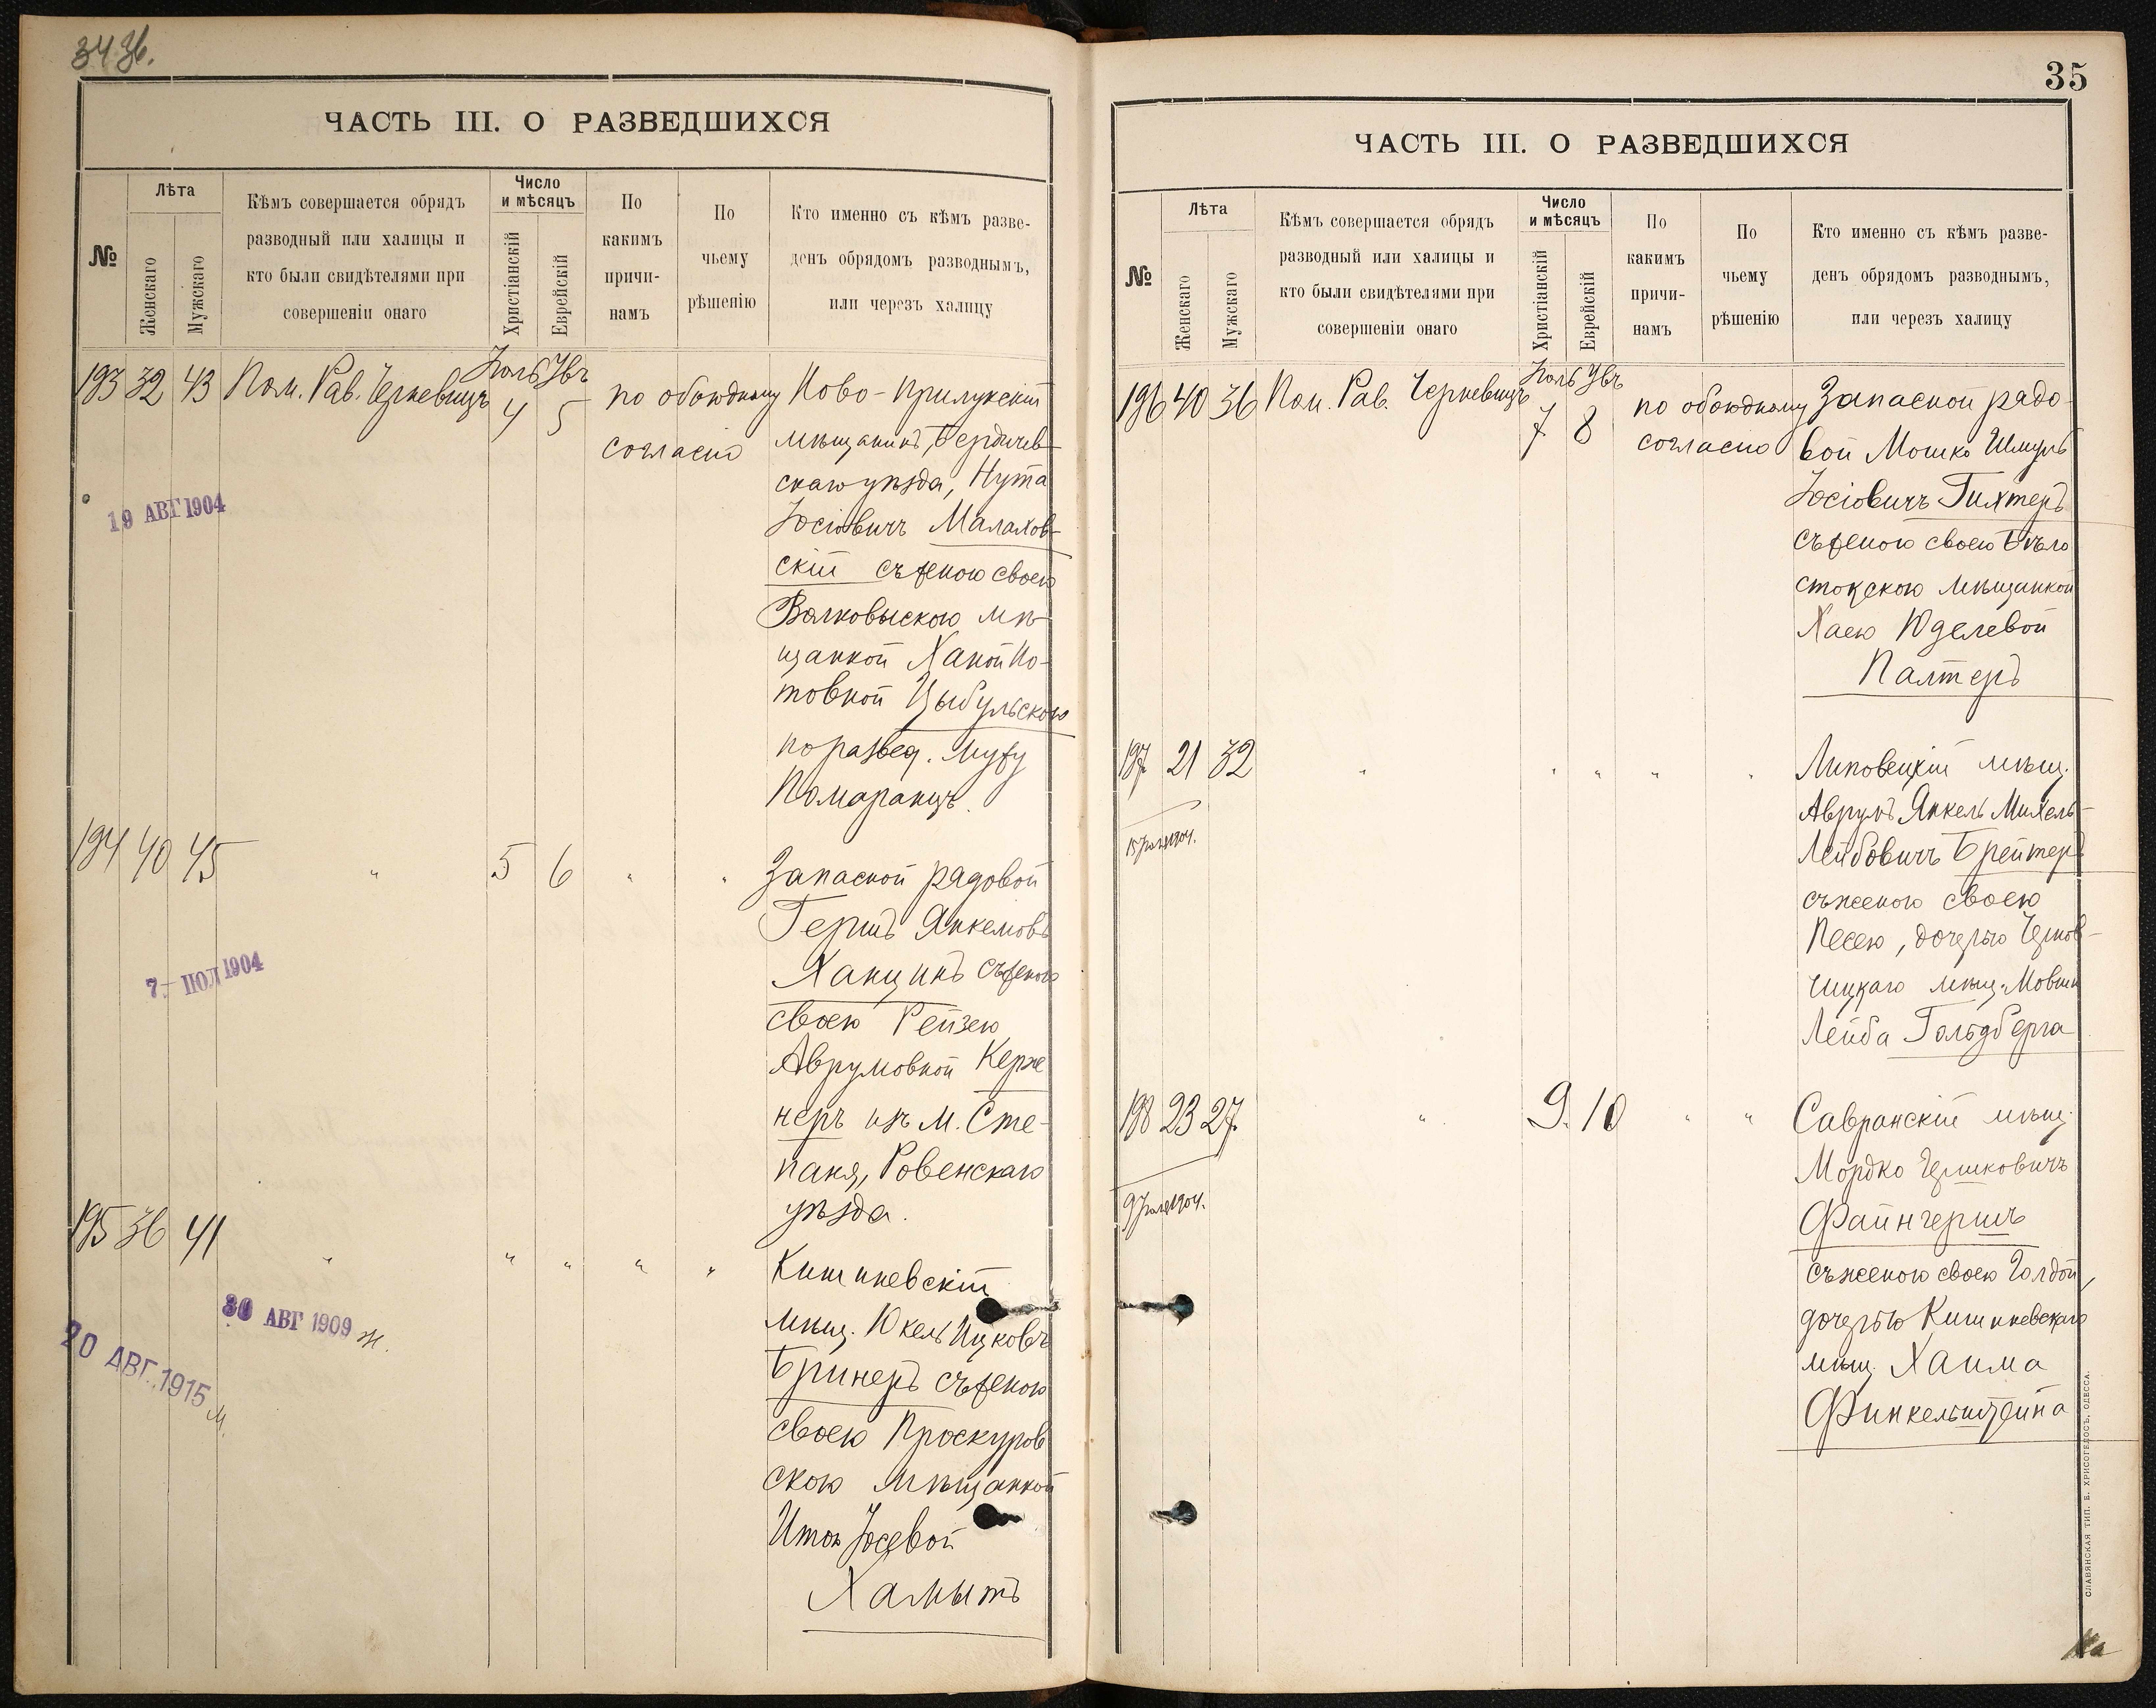 34 36.
ЧАСТЬ III. О РАЗВЕДШИХСЯ
№
Лѣта
Женскаго
Мужскаго
Кѣмъ совершается обрядъ
разводный или халицы и
кто были свидѣтелями при
совершеніи онаго
Число
и мѣсяцъ
Христіанскій
Еврейскій
По
какимъ
причи-
намъ
По
чьему
рѣшенію
Кто именно съ кѣмъ разве-
денъ обрядомъ разводнымъ,
или черезъ халицу
193 32 43 Пом. Рав. Черкевицъ
4 5
по обоюдному
согласію
Ново-Прилукскій
мѣщанинъ, Бердичев-
скаго уѣзда, Нута
Іосіовичъ Малахов-
скій съ женою своею
Волковыскою мѣ-
щанкой Ханой Но-
товной Цыбульскою
по развед. мужу
Помаранцъ.
19 АВГ 1904
194 40 45 " 5 6 " "
Запасной рядовой
Гершъ Янкелювъ
Ханцинъ съ женою
своею Рейзею
Аврумовной Керже
неръ изъ м. Сте-
паня, Ровенскаго
уѣзда.
7 - ІЮЛ 1904
195 36 41 " " " " "
Кишиневскій
мѣщ. Юкель Ицковъ
Бринеръ съ женою
своею Проскуров
скою мѣщанкой
Итой Іосевой
Хамытъ
30 АВГ 1909 Ж.
20 АВГ. 1915 М.
35
ЧАСТЬ III. О РАЗВЕДШИХСЯ
№
Лѣта
Женскаго
Мужскаго
Кѣмъ совершается обрядъ
разводный или халицы и
кто были свидѣтелями при
совершеніи онаго
Число
и мѣсяцъ
Христіанскій
Еврейскій
По
какимъ
причи-
намъ
По
чьему
рѣшенію
Кто именно съ кѣмъ разве-
денъ обрядомъ разводнымъ,
или черезъ халицу
196 40 36 Пом. Рав. Черкевицъ
7 8
по обоюдному
согласію
Запасной рядо-
вой Мошко Шмуль
Іосіовичъ Гихтеръ
съ женою своею Бѣло
стокскою мѣщанкой
Хаею Юделевой
Палтеръ
197 21 32 " " " " "
Липовецкій мѣщ.
Аврумъ Янкель Михель-
Лейбовичъ Брейтеръ
съ женою своею
Песею, дочерью
мѣщ. Мовши
Лейба Гольдберга
15 1904.
198 23 27 " 9. 10 " "
Савранскій мѣщ.
Мордко Гершковичъ
Файнгершъ
съ женою своею Голдой,
дочерью Кишиневскаго
мѣщ. Хаима
Финкельштейна
9 1904.
СЛАВЯНСКАЯ ТИП. Е. ХРИСОГЕЛОСЪ, ОДЕССА.